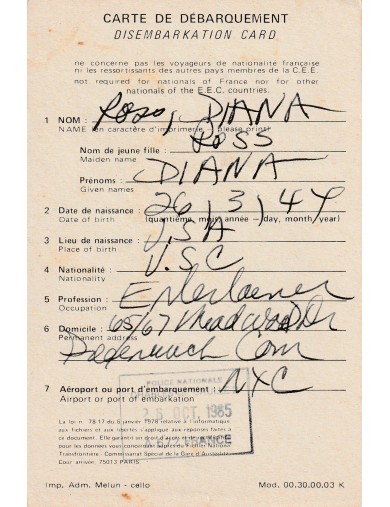 CARTE DE DÉBARQUEMENT
DISEMBARKATION CARD
ne concerne pas les voyageurs de nationalité française
ni les ressortissants des autres pays membres de la C.E.E.
not required for nationals of France nor for other
nationals of the E.E.C. countries.
Ross, DIANA
1 NOM :
NAME (en caractère d'imprimerie – please print)
ROSS
Nom de jeune fille :
Maiden name
DIANA
Prénoms :
Given names
26, 3, 44
2 Date de naissance :
Date of birth (quantième, mois, année – day, month, year)
USA
3 Lieu de naissance :
Place of birth
U.S.C
4 Nationalité :
Nationality
Entertainer
5 Profession :
Occupation
65/67
6 Domicile :
Permanent address
Conn
NYC
7 Aéroport ou port d'embarquement :
Airport or port of embarkation
POLICE NATIONALE
26 OCT. 1985
FRANCE
La loi n° 78-17 du 6 janvier 1978 relative à l'informatique,
aux fichiers et aux libertés s'applique aux réponses faites à
ce document. Elle garantit un droit d'accès et de rectification
pour les données vous concernant auprès du Fichier National
Transfrontière - Commissariat Spécial de la Gare d'Austerlitz
Cour arrivée 75013 PARIS.
Imp. Adm. Melun - cello
Mod. 00.30.00.03 K